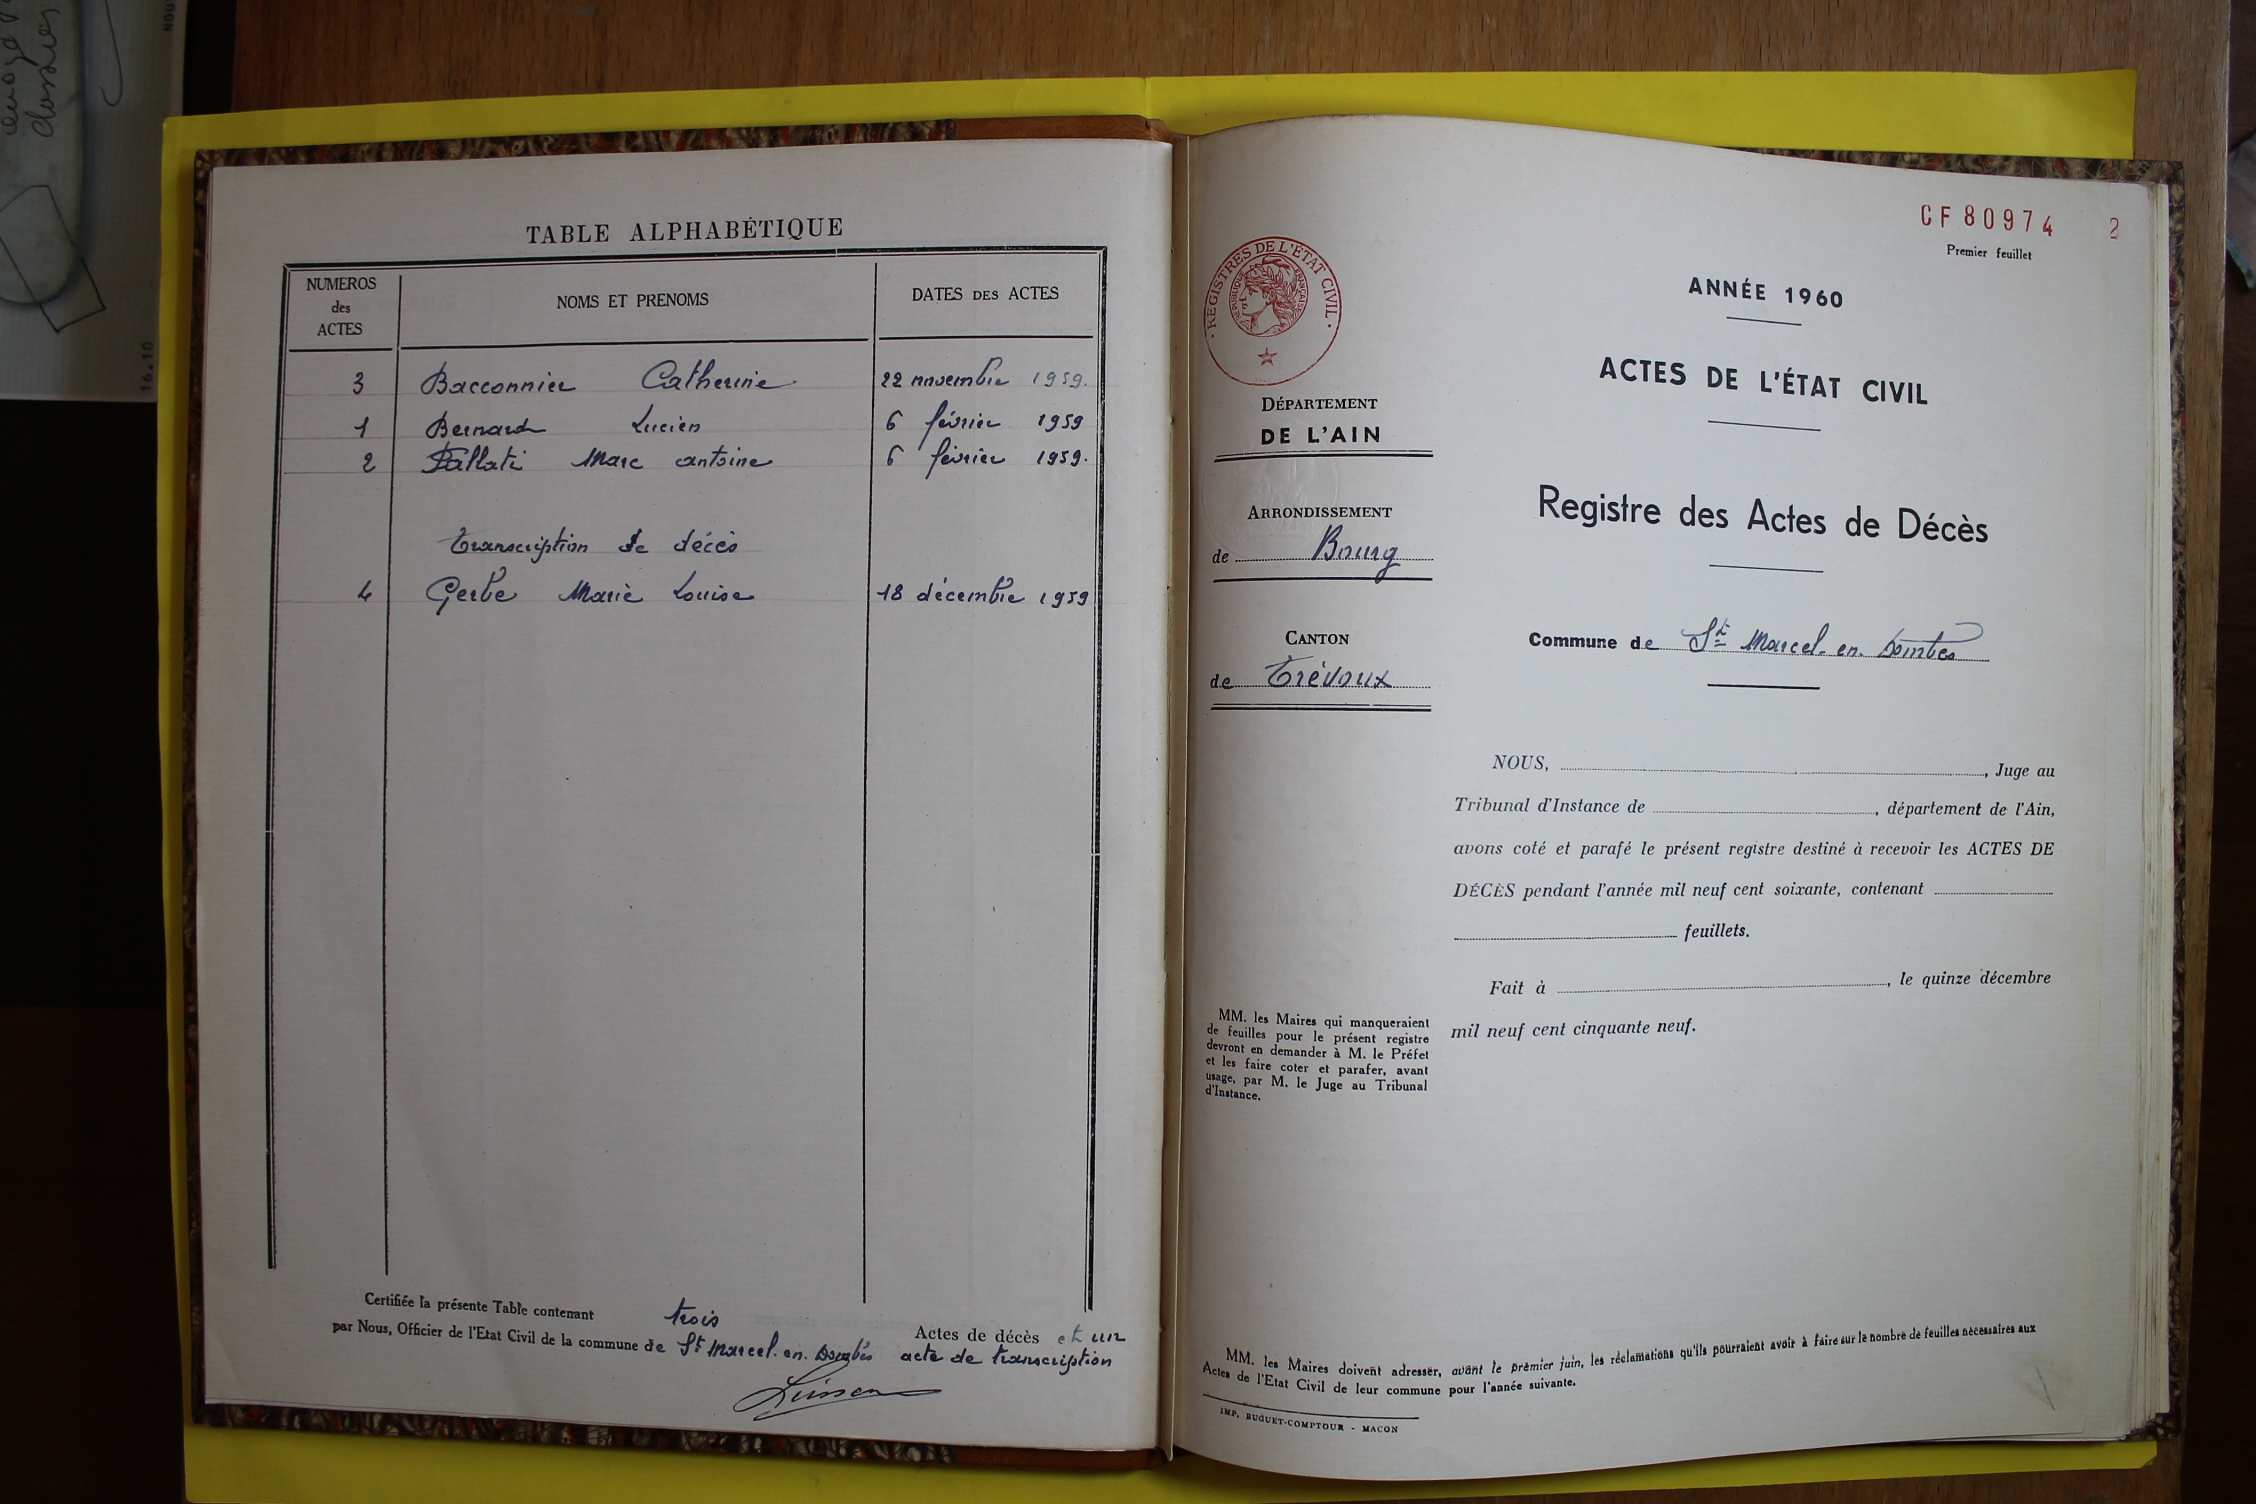 TABLE ALPHABÉTIQUE
NUMEROS des ACTES
NOMS ET PRENOMS
DATES DES ACTES
3 Bacconnier Catherine 22 novembre 1959.
1 Bernard Lucien 6 février 1959
2 Fallati Marc antoine 6 février 1959.
transcription de décès
4 Gerbe Marie Louise 18 décembre 1959
Certifiée la présente Table contenant trois Actes de décès et un
par Nous, Officier de l'Etat Civil de la commune de St Marcel. en. Dombes acte de transcription
CF 80974 2
Premier feuillet
REGISTRES DE L'ÉTAT CIVIL
RÉPUBLIQUE FRANÇAISE
DÉPARTEMENT
DE L'AIN
ARRONDISSEMENT
de Bourg
CANTON
de Trévoux
ANNÉE 1960
ACTES DE L'ÉTAT CIVIL
Registre des Actes de Décès
Commune de St Marcel. en. Dombes
NOUS, , Juge au
Tribunal d'Instance de , département de l'Ain,
avons coté et parafé le présent registre destiné à recevoir les ACTES DE
DÉCÈS pendant l'année mil neuf cent soixante, contenant
feuillets.
Fait à , le quinze décembre
mil neuf cent cinquante neuf.
MM. les Maires qui manqueraient
de feuilles pour le présent registre
devront en demander à M. le Préfet
et les faire coter et parafer, avant
usage, par M. le Juge au Tribunal
d'Instance.
MM. les Maires doivent adresser, avant le premier juin, les réclamations qu'ils pourraient avoir à faire sur le nombre de feuilles nécessaires aux
Actes de l'Etat Civil de leur commune pour l'année suivante.
IMP. BUGUET-COMPTOUR - MACON
16.10